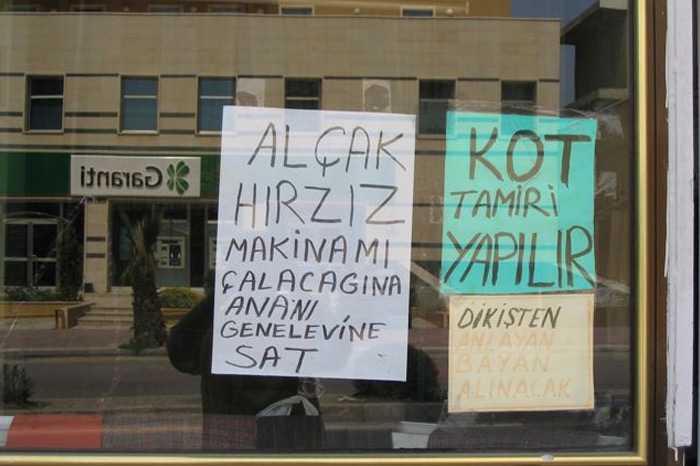 ALÇAK
HIRZIZ
MAKİNAMI
ÇALACAGINA
ANANI
GENELEVİNE
SAT
KOT
TAMİRİ
YAPILIR
DİKİŞTEN
ANLAYAN
BAYAN
ALINACAK
Garanti